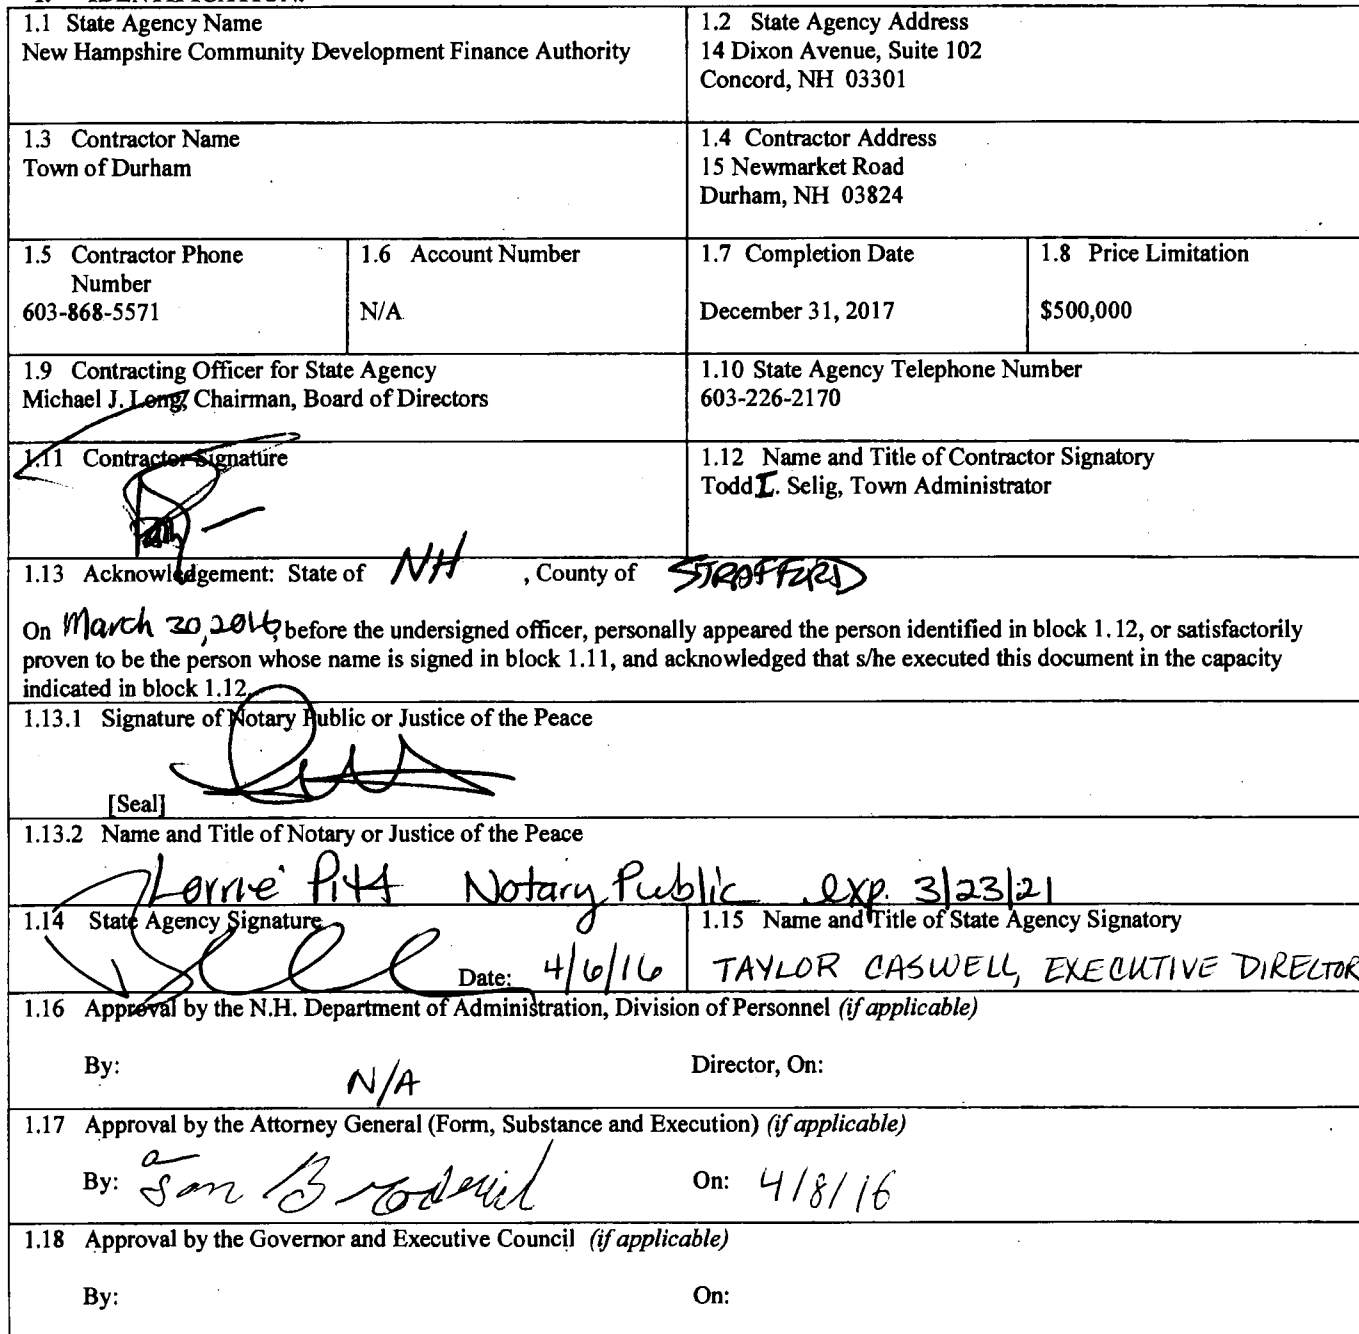 1.1 State Agency Name
New Hampshire Community Development Finance Authority
1.2 State Agency Address
14 Dixon Avenue, Suite 102
Concord, NH 03301
1.3 Contractor Name
Town of Durham
1.4 Contractor Address
15 Newmarket Road
Durham, NH 03824
1.5 Contractor Phone
Number
603-868-5571
1.6 Account Number
N/A
1.7 Completion Date
December 31, 2017
1.8 Price Limitation
$500,000
1.9 Contracting Officer for State Agency
Michael J. Long, Chairman, Board of Directors
1.10 State Agency Telephone Number
603-226-2170
1.11 Contractor Signature
1.12 Name and Title of Contractor Signatory
Todd I. Selig, Town Administrator
1.13 Acknowledgement: State of NH , County of STRAFFORD
On March 30, 2016, before the undersigned officer, personally appeared the person identified in block 1.12, or satisfactorily
proven to be the person whose name is signed in block 1.11, and acknowledged that s/he executed this document in the capacity
indicated in block 1.12.
1.13.1 Signature of Notary Public or Justice of the Peace
[Seal]
1.13.2 Name and Title of Notary or Justice of the Peace
Lorrie Pitt Notary Public exp. 3/23/21
1.14 State Agency Signature
Date: 4/6/16
1.15 Name and Title of State Agency Signatory
TAYLOR CASWELL, EXECUTIVE DIRECTOR
1.16 Approval by the N.H. Department of Administration, Division of Personnel (if applicable)
By: N/A Director, On:
1.17 Approval by the Attorney General (Form, Substance and Execution) (if applicable)
By: On: 4/8/16
1.18 Approval by the Governor and Executive Council (if applicable)
By: On: